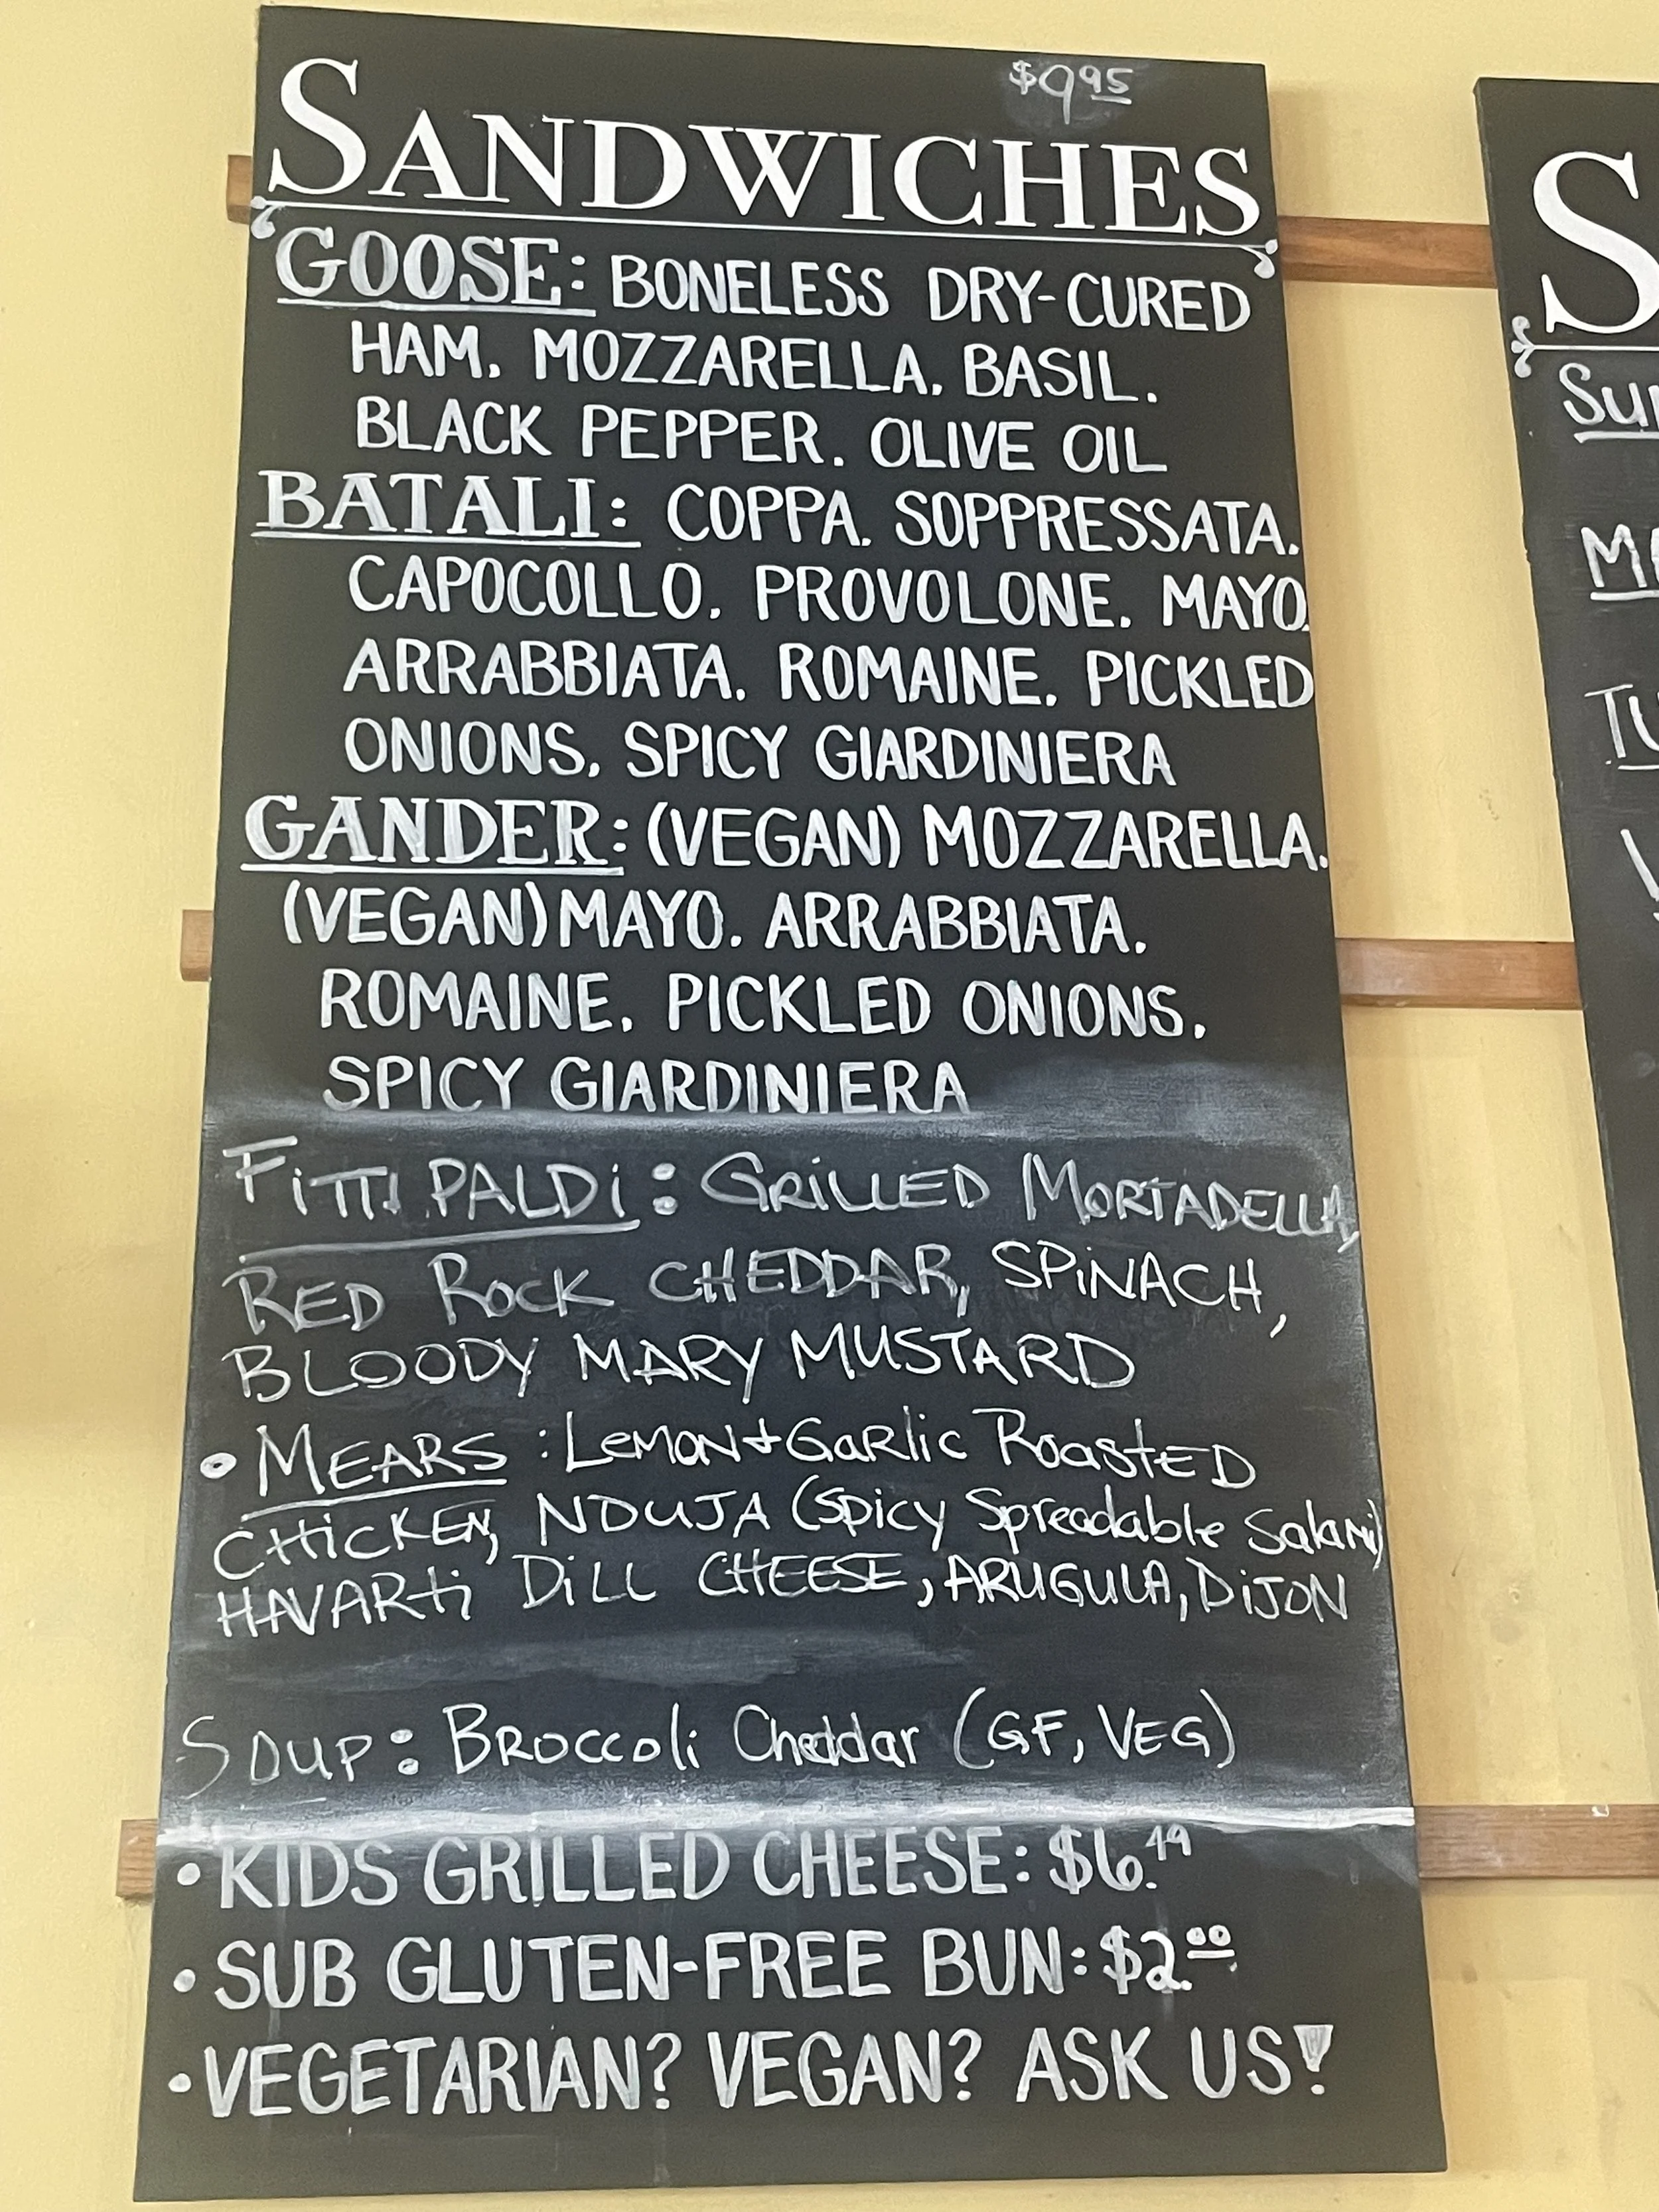 $9.95
SANDWICHES
GOOSE: BONELESS DRY-CURED
HAM. MOZZARELLA. BASIL.
BLACK PEPPER. OLIVE OIL
BATALI: COPPA. SOPPRESSATA.
CAPOCOLLO. PROVOLONE. MAYO.
ARRABBIATA. ROMAINE. PICKLED
ONIONS. SPICY GIARDINIERA
GANDER: (VEGAN) MOZZARELLA.
(VEGAN) MAYO. ARRABBIATA.
ROMAINE. PICKLED ONIONS.
SPICY GIARDINIERA
FiTTi PALDi: GRiLLED MORTADELLA,
RED ROCK CHEDDAR, SPiNACH,
BLOODY MARY MUSTARD
• MEARS: LEMON + GaRlic RoastED
CHiCKEN, NDUJA (Spicy Spreadable Salami)
HAVARti DiLL CHEESE, ARUGULA, DiJON
SOUP: BRoccoli Cheddar (GF, VEG)
• KIDS GRILLED CHEESE: $6.49
• SUB GLUTEN-FREE BUN: $2.00
• VEGETARIAN? VEGAN? ASK US!